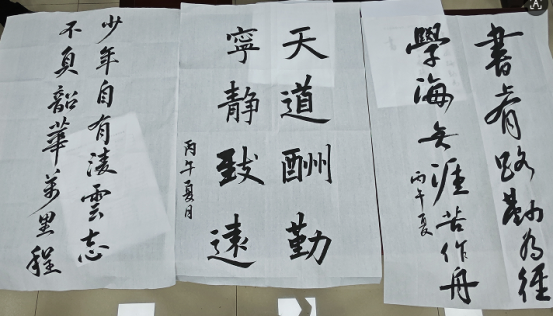 書有路勤為徑
學海無涯苦作舟
丙午夏
天道酬勤
寧靜致遠
丙午夏月
少年自有淩雲志
不負韶華萬里程